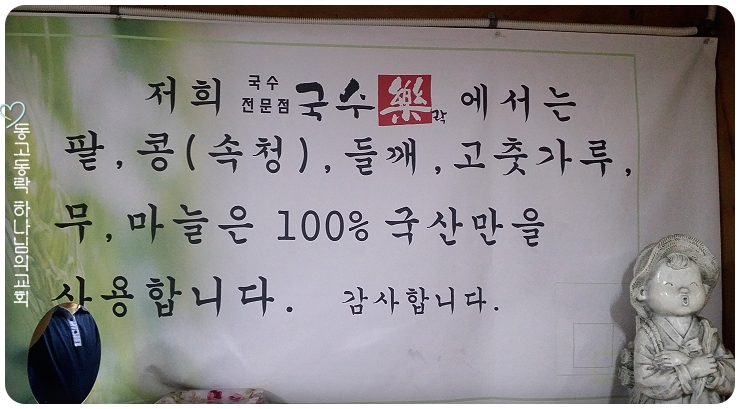 저희 국수전문점 국수樂락 에서는
팥, 콩(속청), 들깨, 고춧가루,
무, 마늘은 100% 국산만을
사용합니다. 감사합니다.
동고동락 하나님의교회